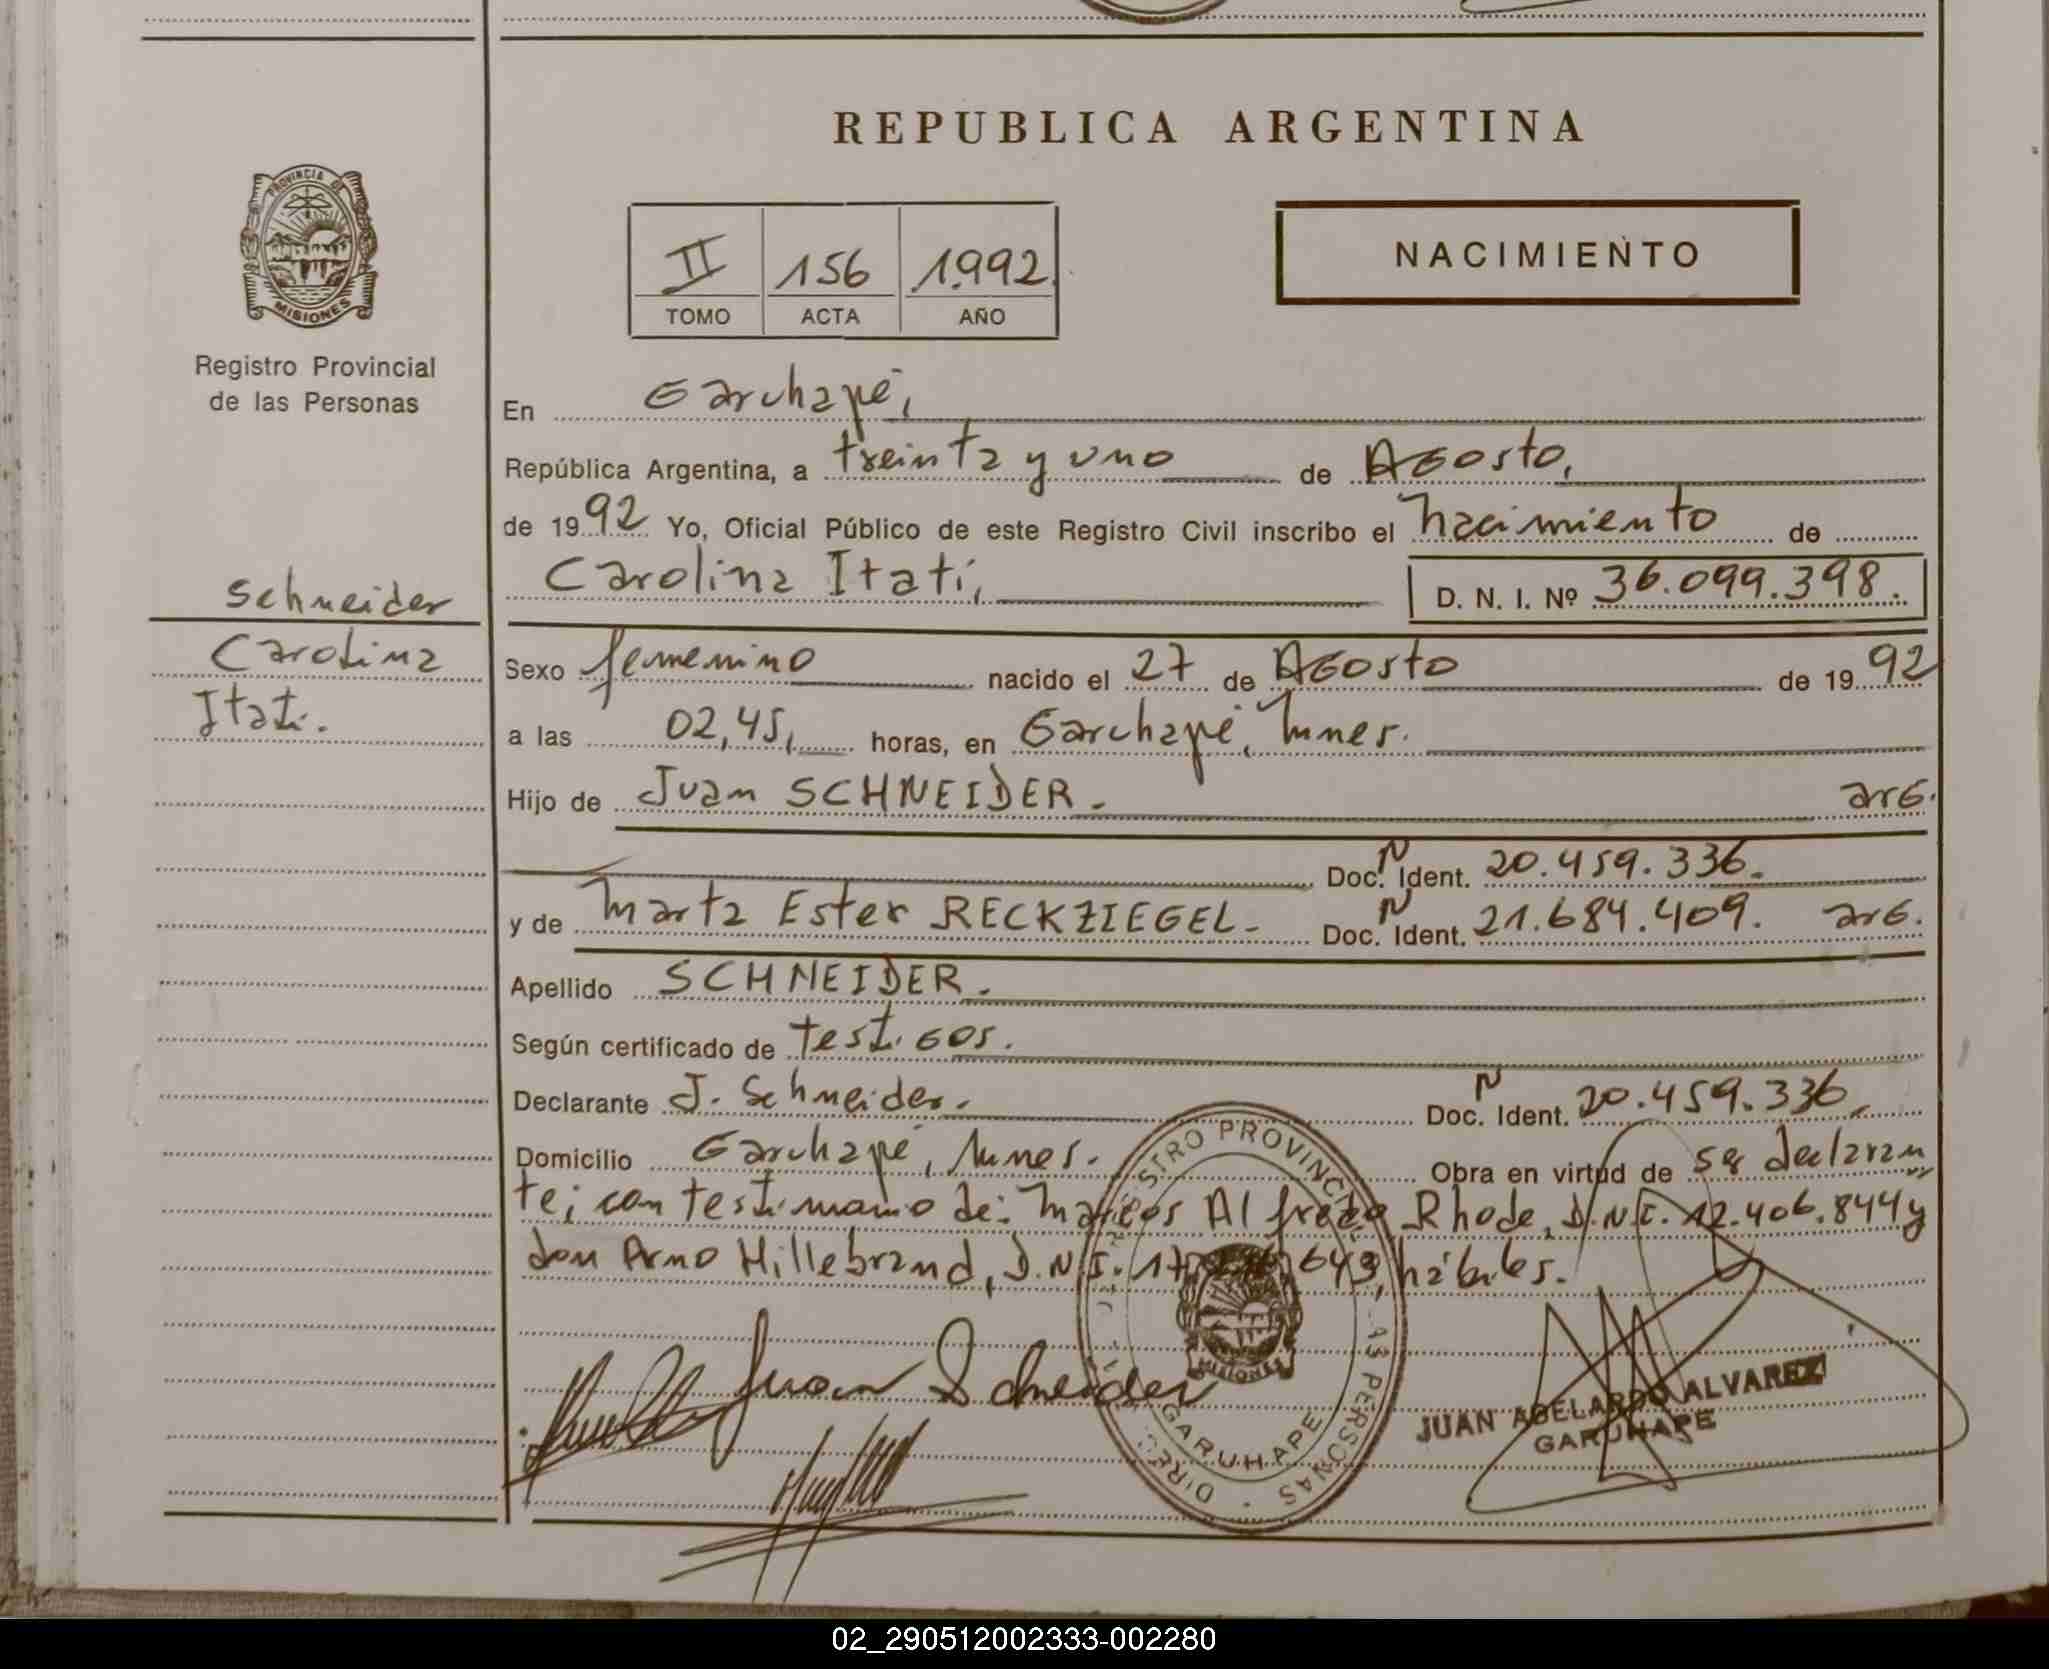 REPUBLICA ARGENTINA
PROVINCIA DE
MISIONES
Registro Provincial
de las Personas
II 156 1.992
TOMO ACTA AÑO
NACIMIENTO
En Garuhapé,
República Argentina, a treinta y uno de Agosto,
de 1992 Yo, Oficial Público de este Registro Civil inscribo el nacimiento de
Carolina Itatí, D. N. I. Nº 36.099.398.
Schneider
Carolina
Itatí.
Sexo femenino nacido el 27 de Agosto de 1992
a las 02,45, horas, en Garuhapé, Mnes.
Hijo de Juan SCHNEIDER. arg.
Doc. N Ident. 20.459.336.
y de Marta Ester RECKZIEGEL. Doc. N Ident. 21.684.409. arg.
Apellido SCHNEIDER.
Según certificado de testigos.
Declarante J. Schneider. Doc. N Ident. 20.459.336.
Domicilio Garuhapé, Mnes. Obra en virtud de ser declaran
te; con testimonio de: Marcos Alfredo Rhode, D.N.I. 12.406.844 y
don Arno Hillebrand, D.N.I. 17. 643, hábiles.
Juan Schneider
MISIONES
GARUHAPE
JUAN ABELARDO ALVAREZ
GARUHAPE
02_290512002333-002280